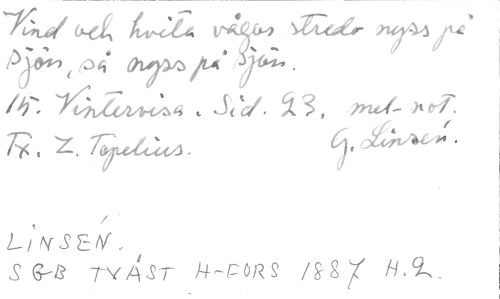 Vind och hvita vågor stredo nyss på
sjön, så nyss på sjön.
15. Vintervisa. Sid. 23. mel-not.
Tx. Z. Topelius. G. Linsén.
LINSÉN.
SGB TVÅST H-FORS 1887 H.2.